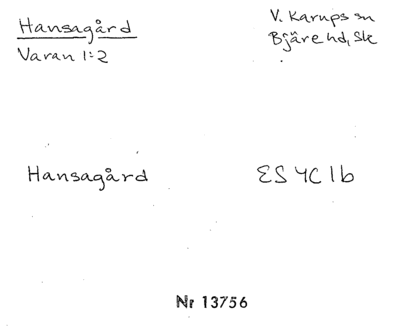 Hansagård
Varan 1:2
V. Karups sn
Bjäre hd, Sk
Hansagård
ES 4C 1b
Nr 13756